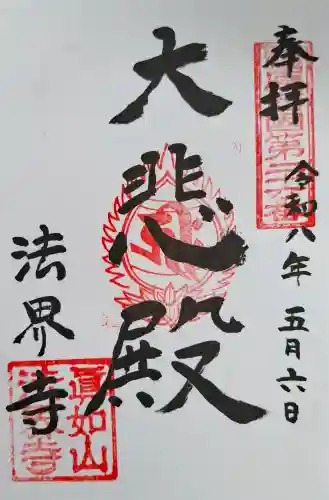 奉拝
令和八年 五月六日
大悲殿
法界寺
眞如山
法界寺